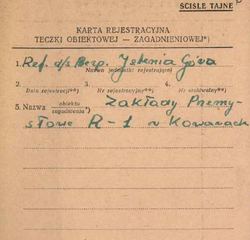 ŚCIŚLE TAJNE
KARTA REJESTRACYJNA
TECZKI OBIEKTOWEJ — ZAGADNIENIOWEJ*)
1. Ref. d/s Bezp. Jelenia Góra
Nazwa jednostki rejestrującej
2. 3. 4.
Data rejestracji**) Nr rejestracyjny**) Nr archiwalny**)
5. Nazwa obiektu zagadnienia*) Zakłady Przemy-
słowe R-1 w Kowarach